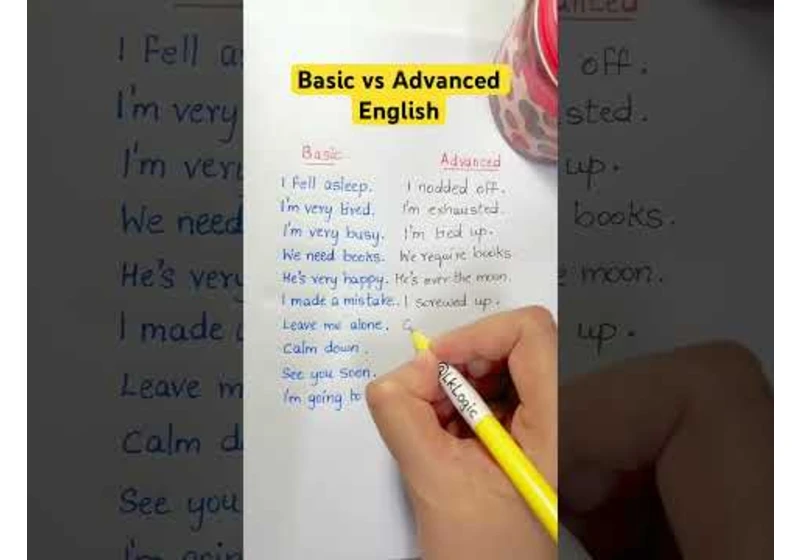 Basic vs Advanced
English
Basic Advanced
I fell asleep. I nodded off.
I'm very tired. I'm exhausted.
I'm very busy. I'm tied up.
We need books. We require books
He's very happy. He's over the moon.
I made a mistake. I screwed up.
Leave me alone.
Calm down.
See you soon.
I'm going to
@LkLogic